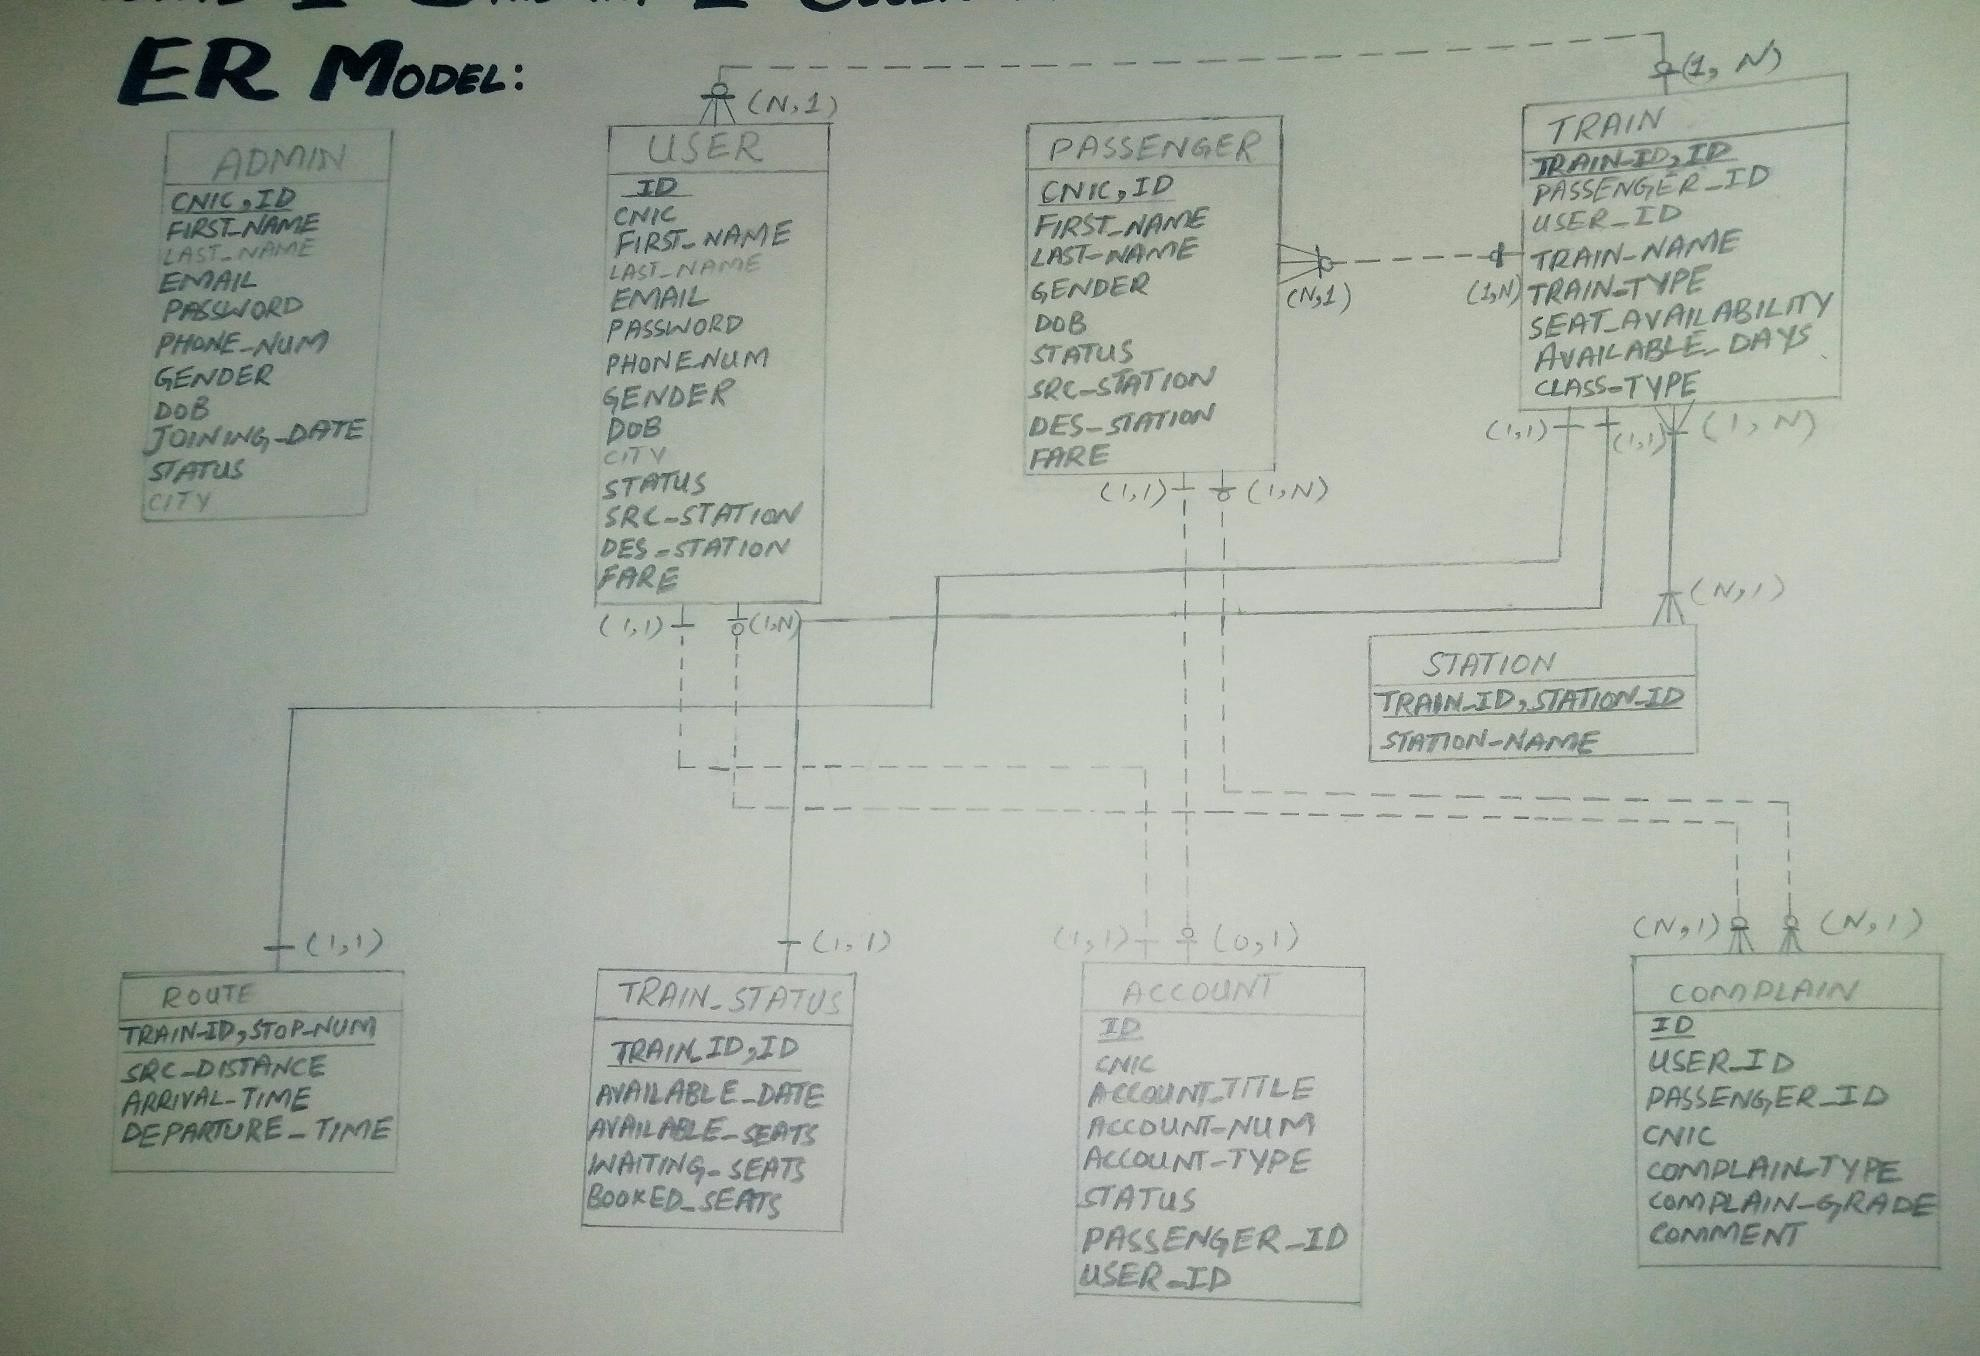 ER MODEL:
(1, N)
(N,1)
ADMIN
CNIC, ID
FIRST_NAME
LAST_NAME
EMAIL
PASSWORD
PHONE_NUM
GENDER
DOB
JOINING_DATE
STATUS
CITY
USER
ID
CNIC
FIRST_NAME
LAST_NAME
EMAIL
PASSWORD
PHONE_NUM
GENDER
DOB
CITY
STATUS
SRC_STATION
DES_STATION
FARE
(1,1)
(1,N)
PASSENGER
CNIC, ID
FIRST_NAME
LAST_NAME
GENDER
DOB
STATUS
SRC_STATION
DES_STATION
FARE
(N,1)
(1,N)
(1,1)
(1,N)
TRAIN
TRAIN_ID, ID
PASSENGER_ID
USER_ID
TRAIN_NAME
TRAIN_TYPE
SEAT_AVAILABILITY
AVAILABLE_DAYS
CLASS_TYPE
(1,1)
(1,1)
(1, N)
(N,1)
STATION
TRAIN_ID, STATION_ID
STATION_NAME
(1,1)
ROUTE
TRAIN_ID, STOP_NUM
SRC_DISTANCE
ARRIVAL_TIME
DEPARTURE_TIME
(1,1)
TRAIN_STATUS
TRAIN_ID, ID
AVAILABLE_DATE
AVAILABLE_SEATS
WAITING_SEATS
BOOKED_SEATS
(1,1)
(0,1)
ACCOUNT
ID
CNIC
ACCOUNT_TITLE
ACCOUNT_NUM
ACCOUNT_TYPE
STATUS
PASSENGER_ID
USER_ID
(N,1)
(N,1)
COMPLAIN
ID
USER_ID
PASSENGER_ID
CNIC
COMPLAIN_TYPE
COMPLAIN_GRADE
COMMENT